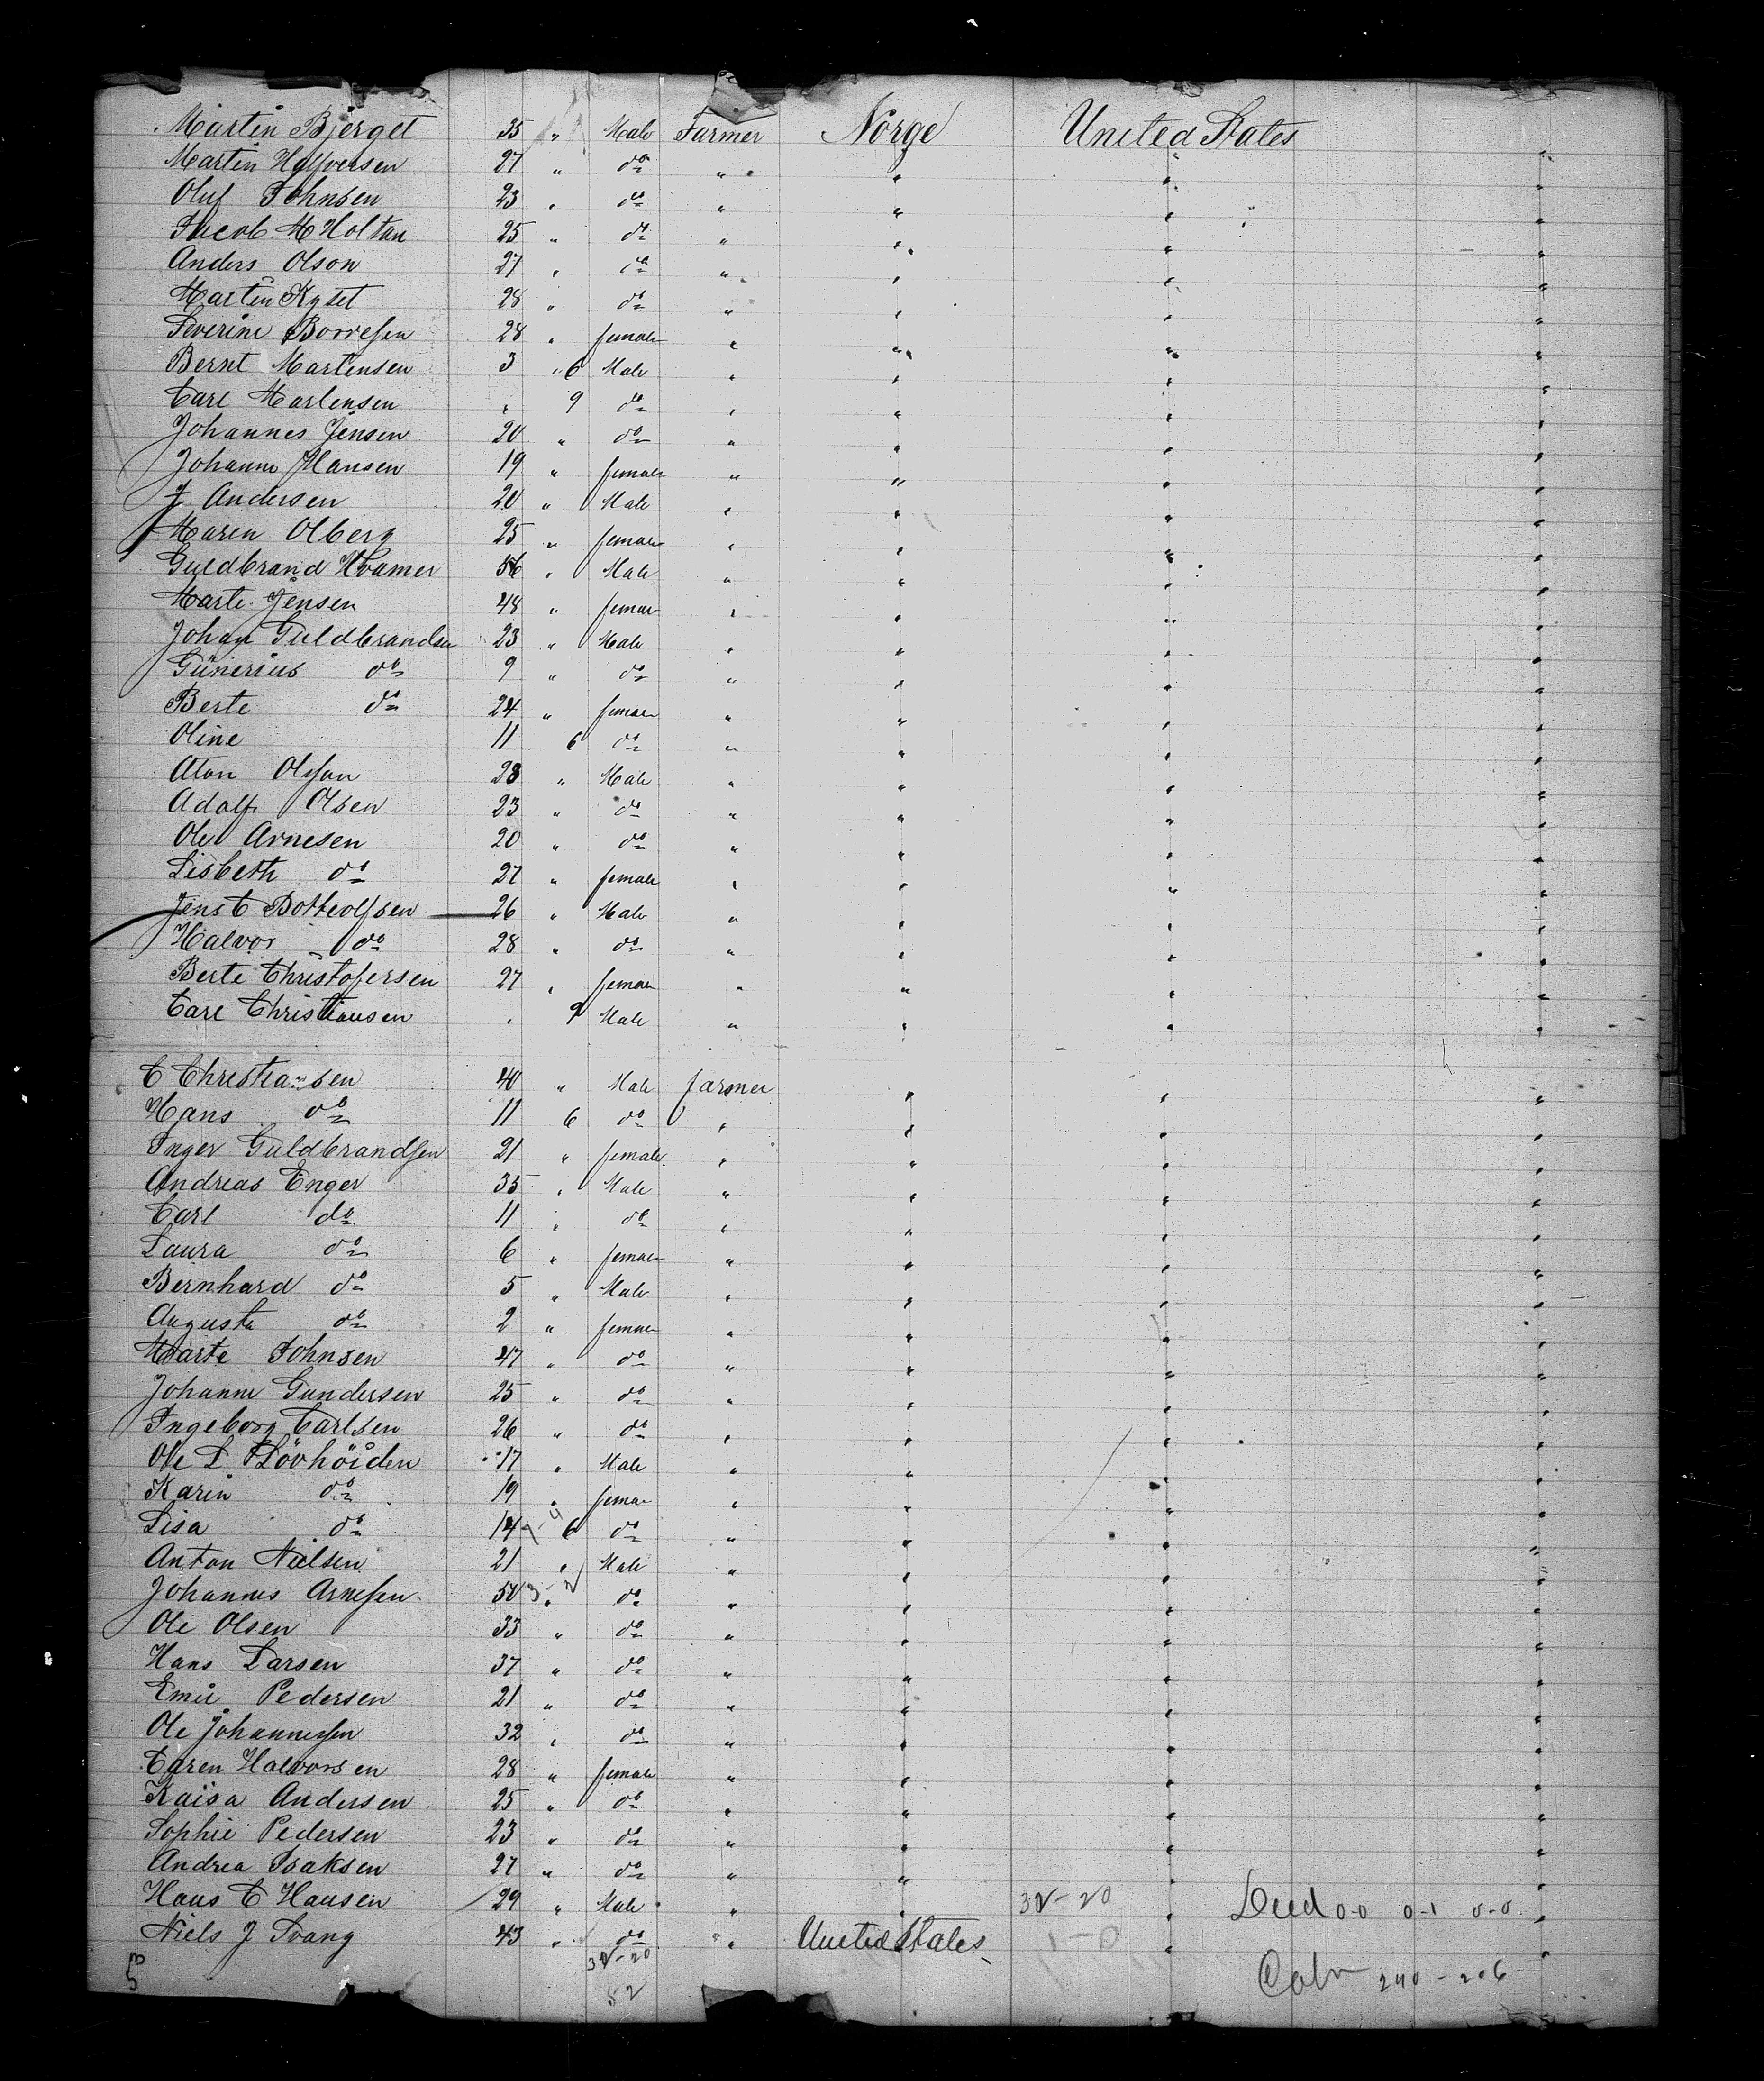 Martin Bjerget 35 " Male Farmer Norge United States
Martin Halversen 27 " do " " " "
Oluf Johnsen 23 " do " " " "
Jacob M Holtan 25 " do " " " "
Anders Olson 27 " do " " " "
Martin Kyset 28 " do " " " "
Severine Borresen 28 " female " " " "
Bernt Martensen 3 " 6 Male " " " "
Carl Martensen " 9 do " " " "
Johannes Jensen 20 " do " " " "
Johanne Hansen 19 " female " " " "
J Andersen 20 " Male " " " "
Maren Olberg 25 " female " " " "
Guldbrand Hvamer 56 " Male " " " "
Marte Jensen 48 " female " " " "
Johan Guldbrandsen 23 " Male " " " "
Günerius do 9 " do " " " "
Berte do 24 " female " " " "
Oline 11 6 do " " " "
Aton Olsson 28 " Male " " " "
Adolf Olsen 23 " do " " " "
Ole Arnesen 20 " do " " " "
Lisbeth do 27 " female " " " "
Jens C Botteolfsen 26 " Male " " " "
Halvor do 28 " do " " " "
Berte Christofersen 27 " female " " " "
Carl Christiansen " 9 Male " " " "
C Christiansen 40 " Male farmer " " "
Hans do 11 6 do " " " "
Inger Guldbrandsen 21 " female " " " "
Andreas Enger 35 " Male " " " "
Carl do 11 " do " " " "
Laura do 6 " female " " " "
Bernhard do 5 " Male " " " "
Augusta do 2 " female " " " "
Marte Johnsen 47 " do " " " "
Johanne Gundersen 25 " do " " " "
Ingeborg Carlsen 26 " do " " " "
Ole L Lövhöiden 17 " Male " " " "
Karin do 19 " female " " " "
Lisa do 14 6 do " " " "
Anton Nielsen 21 " Male " " " "
Johannes Arnesen 50 " do " " " "
Ole Olsen 33 " do " " " "
Hans Larsen 37 " do " " " "
Emil Pedersen 21 " do " " " "
Ole Johannessen 32 " do " " " "
Caren Halvorsen 28 " female " " " "
Kaisa Andersen 25 " do " " " "
Sophie Pedersen 23 " do " " " "
Andrea Isaksen 27 " do " " " "
Hans C Hansen 29 " Male " " 32-20 " Died 0-0 0-1 0-0 "
Niels J Svang 43 " do " United States 1-0 " "
32-20
52
Cabn 240-206